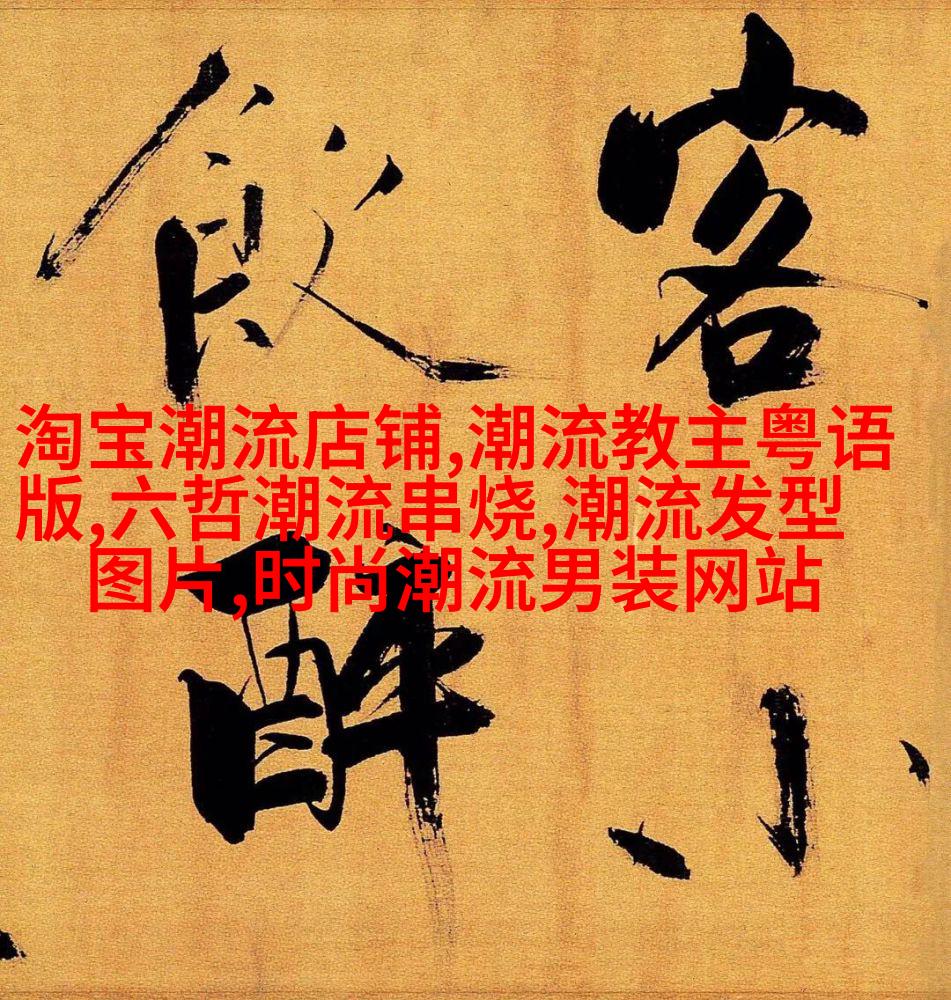 客小
飲醉
淘宝潮流店铺,潮流教主粤语
版,六哲潮流串烧,潮流发型
图片,时尚潮流男装网站